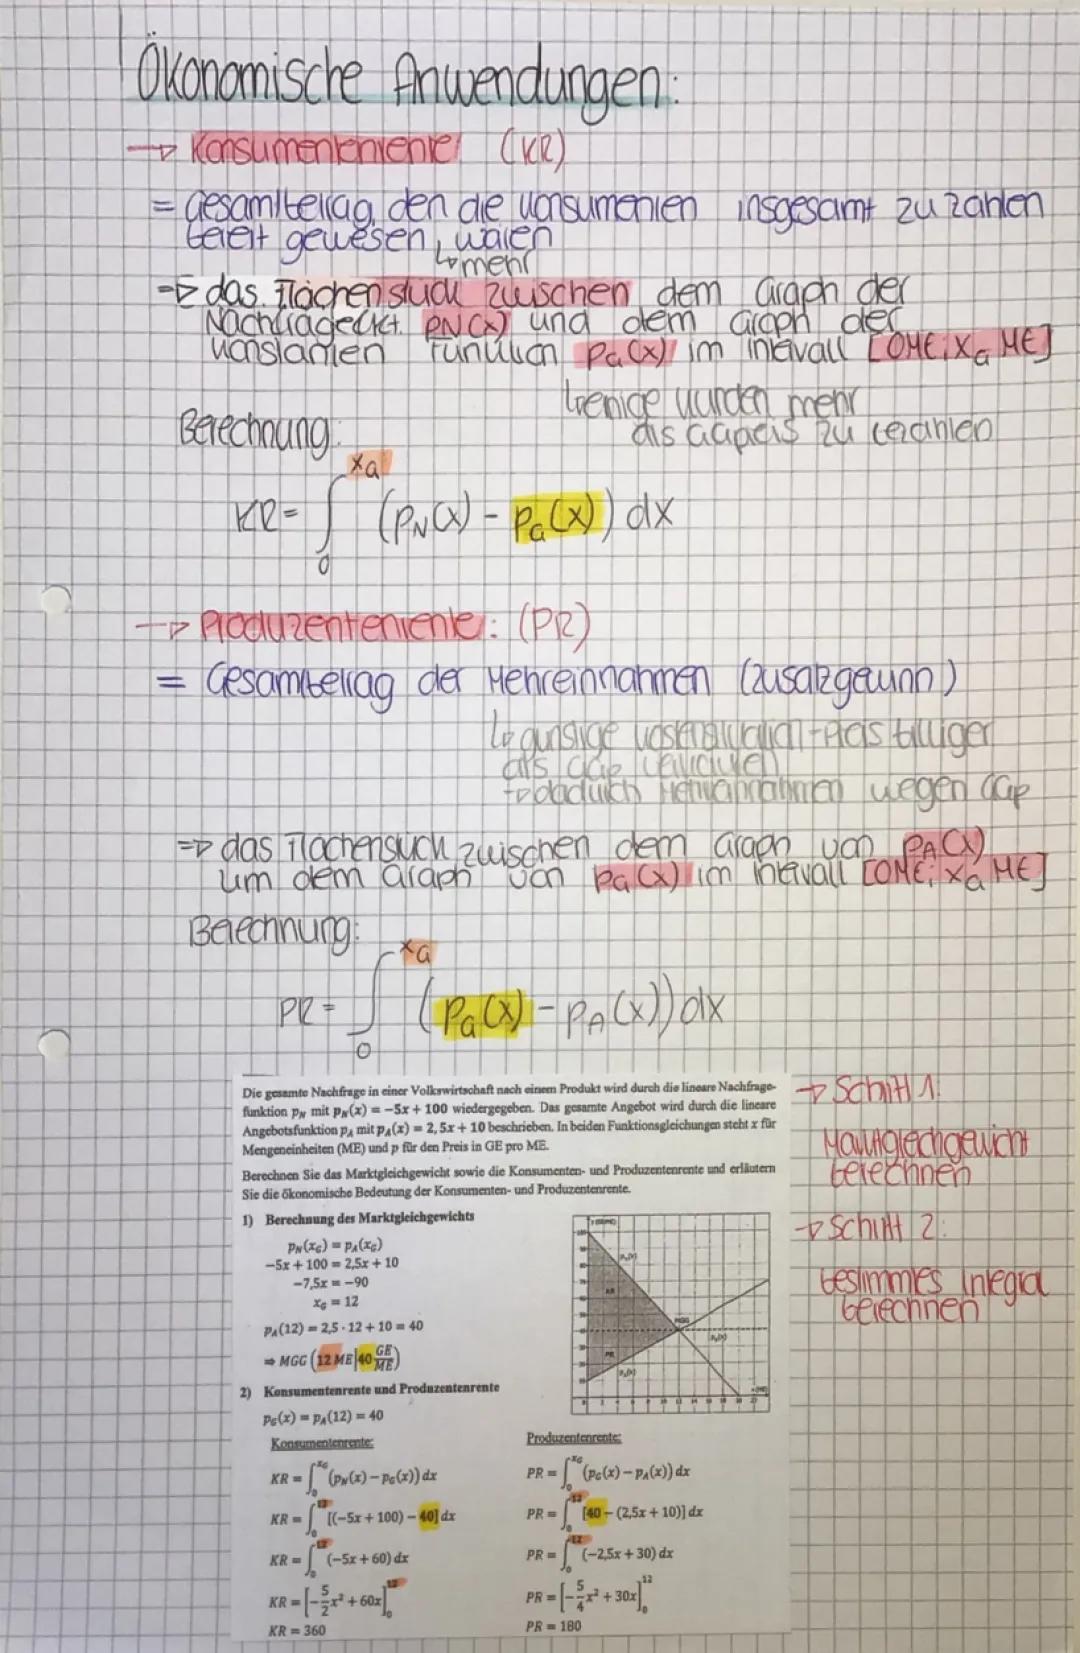 Ökonomische Anwendungen:
→ Konsumentenrente (KR)
= Gesamtbetrag, den die Konsumenten insgesamt zu zahlen
bereit gewesen, wären
↳ mehr
⇒ das Flächenstück zwischen dem Graph der
Nachfragefkt. pN(x) und dem Graph der
konstanten Funktion pG(x) im Intervall [0ME; xG ME]
wenige Kunden mehr
als zu bezahlen
Berechnung:
KR = ∫₀^xG (pN(x) - pG(x)) dx
→ Produzentenrente: (PR)
= Gesamtbetrag der Mehreinnahmen (Zusatzgewinn)
↳ günstige - Preis billiger
als
→ dadurch Mehreinnahmen wegen
⇒ das Flächenstück zwischen dem Graph von pA(x)
um dem Graph von pG(x) im Intervall [0ME; xG ME]
Berechnung:
PR = ∫₀^xG (pG(x) - pA(x)) dx
Die gesamte Nachfrage in einer Volkswirtschaft nach einem Produkt wird durch die lineare Nachfrage-
funktion pN mit pN(x) = −5x + 100 wiedergegeben. Das gesamte Angebot wird durch die lineare
Angebotsfunktion pA mit pA(x) = 2,5x + 10 beschrieben. In beiden Funktionsgleichungen steht x für
Mengeneinheiten (ME) und p für den Preis in GE pro ME.
Berechnen Sie das Marktgleichgewicht sowie die Konsumenten- und Produzentenrente und erläutern
Sie die ökonomische Bedeutung der Konsumenten- und Produzentenrente.
→ Schritt 1:
Marktgleichgewicht
berechnen
→ Schritt 2:
bestimmtes Integral
berechnen
1) Berechnung des Marktgleichgewichts
pN(xG) = pA(xG)
−5x + 100 = 2,5x + 10
−7,5x = −90
xG = 12
pA(12) = 2,5 · 12 + 10 = 40
⇒ MGG (12 ME|40 GE/ME)
2) Konsumentenrente und Produzentenrente
pG(x) = pA(12) = 40
Konsumentenrente:
KR = ∫₀^xG (pN(x) − pG(x)) dx
KR = ∫₀^12 [(−5x + 100) − 40] dx
KR = ∫₀^12 (−5x + 60) dx
KR = [−5/2 x² + 60x]₀^12
KR = 360
Produzentenrente:
PR = ∫₀^xG (pG(x) − pA(x)) dx
PR = ∫₀^12 [40 − (2,5x + 10)] dx
PR = ∫₀^12 (−2,5x + 30) dx
PR = [−5/4 x² + 30x]₀^12
PR = 180